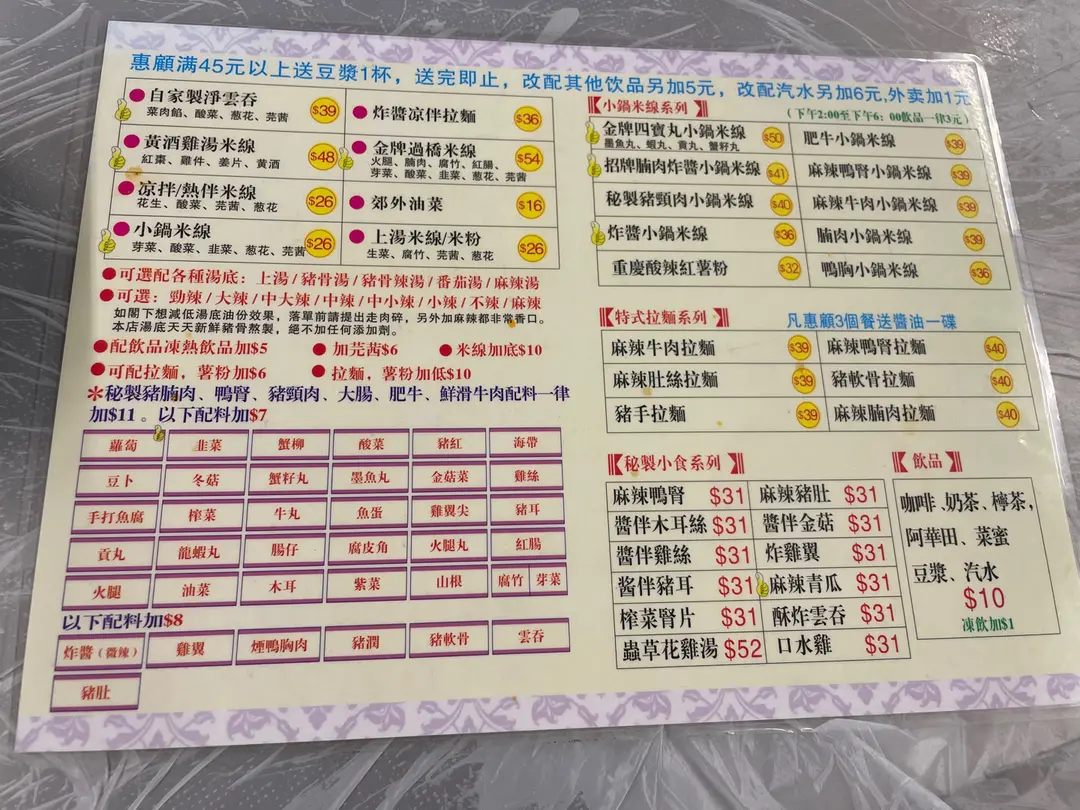 惠顧满45元以上送豆漿1杯，送完即止，改配其他饮品另加5元，改配汽水另加6元,外卖加1元
(下午2:00至下午6：00飲品一律3元)
自家製淨雲吞 $39
葉肉餡、酸菜、葱花、芫茜
炸醬凉伴拉麵 $36
黃酒雞湯米線 $48
紅棗、雞件、姜片、黄酒
金牌過橋米線 $54
火腿、腩肉、腐竹、紅腸、
芽菜、酸菜、韭菜、葱花、芫茜
凉拌/熱伴米線 $26
花生、酸菜、芫茜、葱花
郊外油菜 $16
小鍋米線 $26
芽菜、酸菜、韭菜、葱花、芫茜
上湯米線/米粉 $26
生菜、腐竹、芫茜、葱花
可選配各種湯底：上湯/豬骨湯/豬骨辣湯/番茄湯/麻辣湯
可選：勁辣/大辣/中大辣/中辣/中小辣/小辣/不辣/麻辣
如閣下想減低湯底油份效果，落單前請提出走肉碎，另外加麻辣都非常香口。
本店湯底天天新鮮豬骨熬製，絕不加任何添加劑。
配飲品凍熱飲品加$5 加芫茜$6 米線加底$10
可配拉麵，薯粉加$6 拉麵，薯粉加低$10
*秘製豬腩肉、鴨腎、豬頸肉、大腸、肥牛、鮮滑牛肉配料一律
加$11 。以下配料加$7
蘿蔔 韭菜 蟹柳 酸菜 豬紅 海帶
豆卜 冬菇 蟹籽丸 墨魚丸 金菇菜 雞絲
手打魚腐 榨菜 牛丸 魚蛋 雞翼尖 豬耳
貢丸 龍蝦丸 腸仔 腐皮角 火腿丸 紅腸
火腿 油菜 木耳 紫菜 山根 腐竹 芽菜
以下配料加$8
炸醬（微辣） 雞翼 煙鴨胸肉 豬潤 豬軟骨 雲吞
豬肚
小鍋米線系列
金牌四寶丸小鍋米線 $50
墨魚丸、蝦丸、貢丸、蟹籽丸
肥牛小鍋米線 $39
招牌腩肉炸醬小鍋米線 $41
麻辣鴨腎小鍋米線 $39
秘製豬頸肉小鍋米線 $40
麻辣牛肉小鍋米線 $39
炸醬小鍋米線 $36
腩肉小鍋米線 $39
重慶酸辣紅薯粉 $32
鴨胸小鍋米線 $36
特式拉麵系列 凡惠顧3個餐送醬油一碟
麻辣牛肉拉麵 $39 麻辣鴨腎拉麵 $40
麻辣肚絲拉麵 $39 豬軟骨拉麵 $40
豬手拉麵 $39 麻辣腩肉拉麵 $40
秘製小食系列
麻辣鴨腎 $31 麻辣豬肚 $31
醬伴木耳絲 $31 醬伴金菇 $31
醬伴雞絲 $31 炸雞翼 $31
酱伴豬耳 $31 麻辣青瓜 $31
榨菜腎片 $31 酥炸雲吞 $31
蟲草花雞湯 $52 口水雞 $31
飲品
咖啡、奶茶、檸茶,
阿華田、菜蜜
豆漿、汽水
$10
凍飲加$1